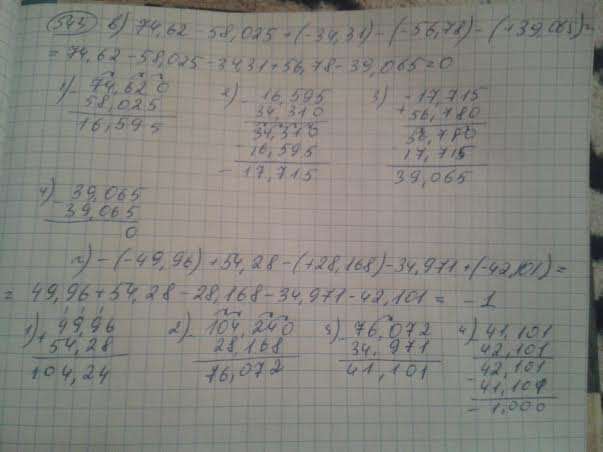 545 в) 74,62 - 58,025 + (-34,31) - (-56,78) - (+39,065) =
= 74,62 - 58,025 - 34,31 + 56,78 - 39,065 = 0
1) - 74,620
58,025
16,595
2) - 16,595
34,310
34,310
- 16,595
- 17,715
3) - 17,715
+ 56,780
56,780
17,715
39,065
4) - 39,065
39,065
0
г) - (-49,96) + 54,28 - (+28,168) - 34,971 + (-42,101) =
= 49,96 + 54,28 - 28,168 - 34,971 - 42,101 = -1
1) + 49,96
54,28
104,24
2) - 104,240
28,168
76,072
3) - 76,072
34,971
41,101
4) - 41,101
42,101
- 42,101
41,101
- 1,000